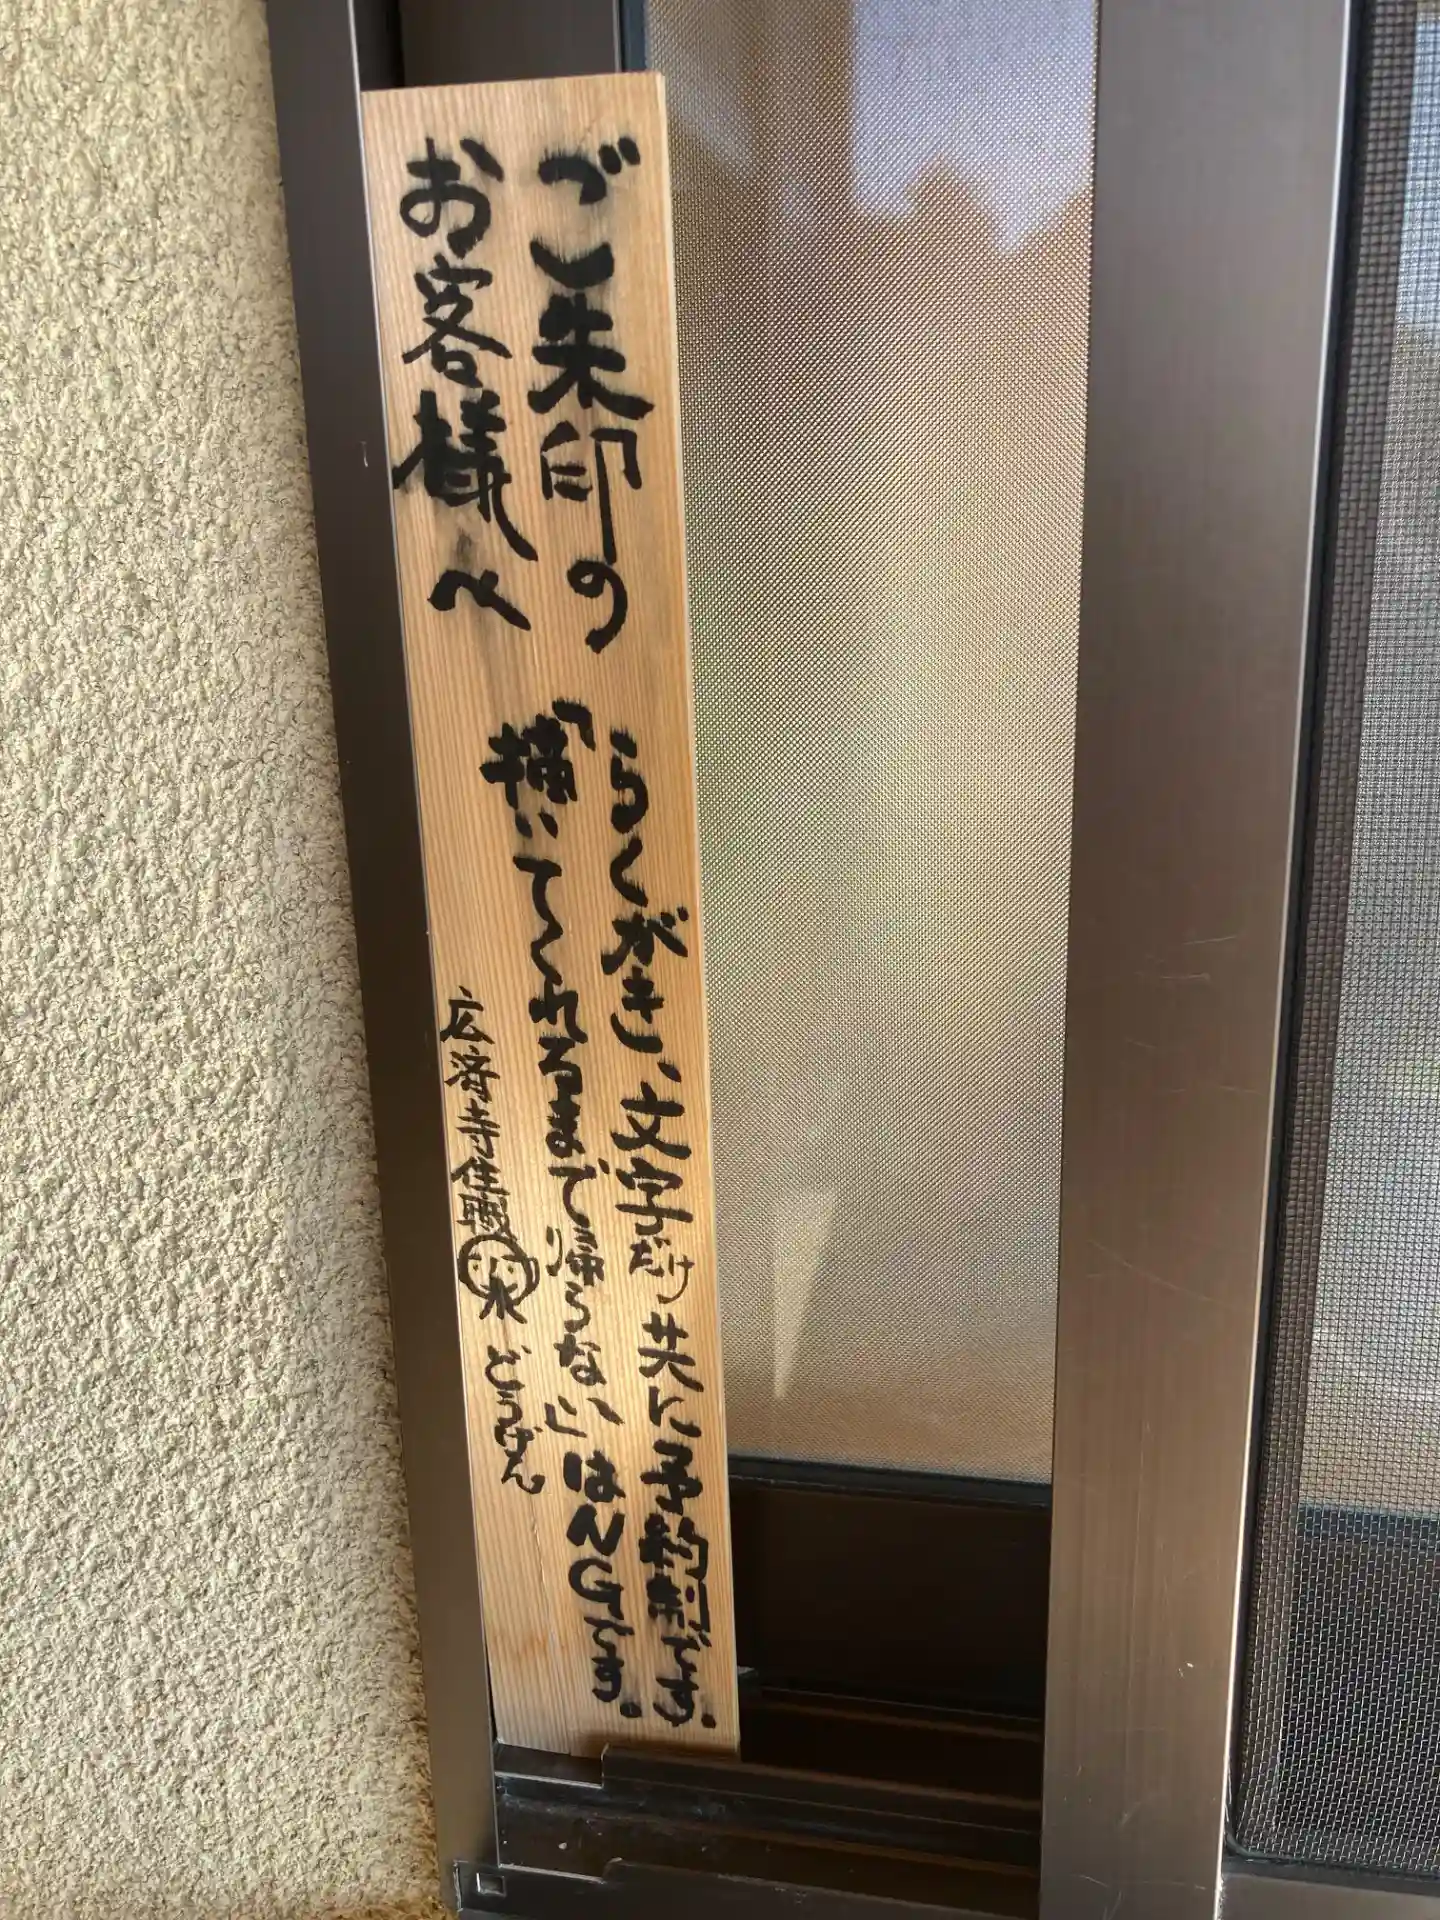 ご朱印の
お客様へ
らくがき、文字だけ共に予約制です。
「描いてくれるまで帰らない」はNGです。
広済寺住職 どうげん